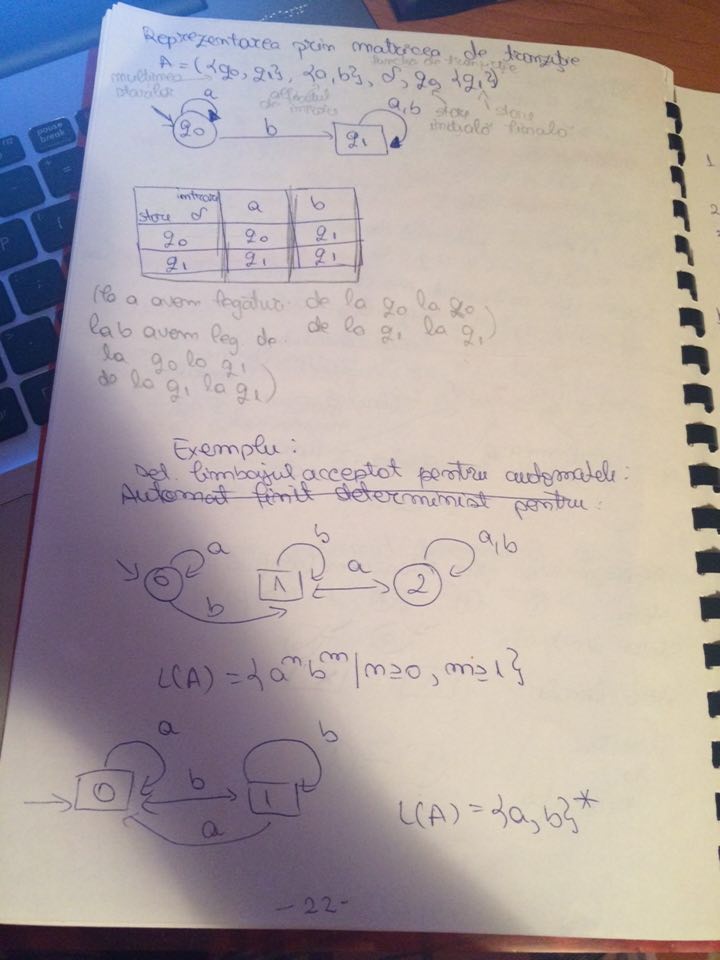 Reprezentarea prin matricea de tranziție
A = ({q0, q1}, {a, b}, δ, q0, {q1})
funcția de tranziție
mulțimea
stărilor
alfabetul
de intrare
stare
inițială
stare
finală
a
q0
b
a,b
q1
intrare
stare δ
a
b
q0
q0
q1
q1
q1
q1
(la a avem legătur. de la q0 la q0
de la q1 la q1)
la b avem leg de
la q0 la q1
de la q1 la q1)
Exemplu:
Det. limbajul acceptat pentru automatele:
Automat finit determinist pentru:
0
a
b
1
b
a
2
a,b
L(A) = {a^n b^m | n≥0, m≥1}
a
0
b
1
b
a
L(A) = {a, b}*
- 22 -